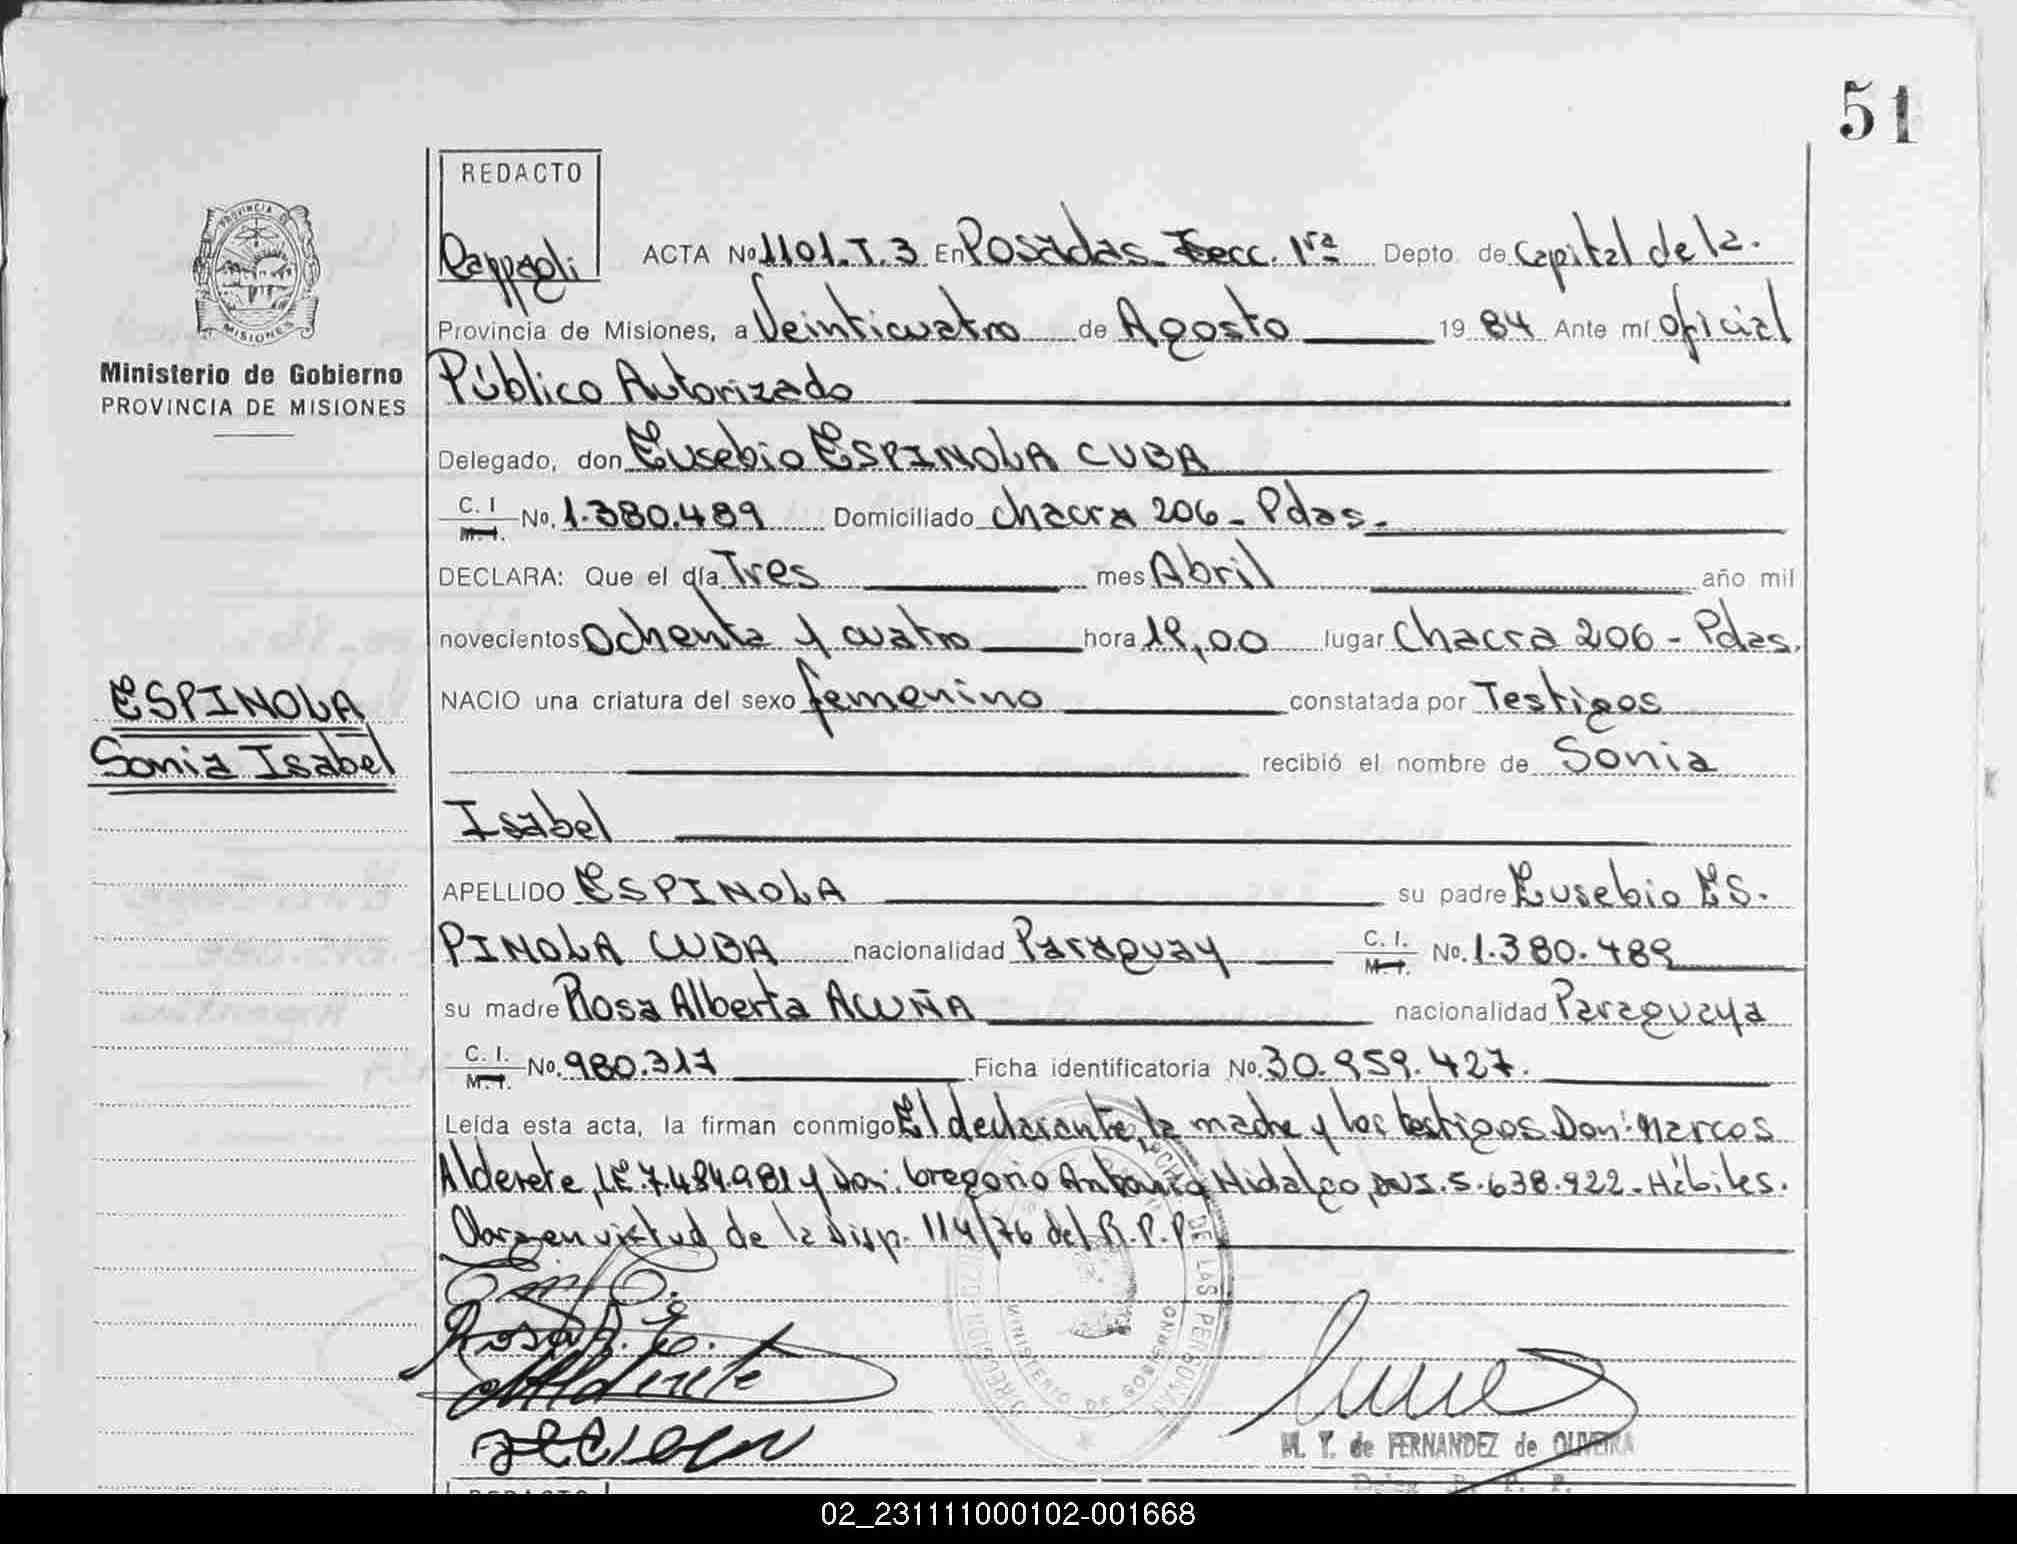 51
REDACTO
ACTA No 1101. T. 3 En Posadas - Secc. 1ra Depto. de Capital de la.
Provincia de Misiones, a Veinticuatro de Agosto 19 84 Ante mí Oficial
Ministerio de Gobierno
PROVINCIA DE MISIONES
Público Autorizado
Delegado, don Eusebio ESPINOLA CUBA
C. I. M. I. No. 1.380.489 Domiciliado Chacra 206 - Pdas.
DECLARA: Que el día Tres mes Abril año mil
novecientos Ochenta y cuatro hora 19,00 lugar Chacra 206 - Pdas.
ESPINOLA
Sonia Isabel
NACIO una criatura del sexo femenino constatada por Testigos
recibió el nombre de Sonia
Isabel
APELLIDO ESPINOLA su padre Eusebio ES-
PINOLA CUBA nacionalidad Paraguay C. I. M. I. No. 1.380.489
su madre Rosa Alberta ACUÑA nacionalidad Paraguaya
C. I. M. I. No. 980.317 Ficha identificatoria No. 30.959.427.
Leída esta acta, la firman conmigo El declarante, la madre y los testigos Don: Marcos
Alderete, LE.7.484.981 y Don: Gregorio Antonio Hidalgo, DNI.5.638.922 - Hábiles.
en virtud de la Disp. 114/76 del R.P.P.
DE LAS PERSONAS
MINISTERIO DE GOBIERNO
M. T. de FERNANDEZ de OLIVEIRA
REDACTO
02_231111000102-001668